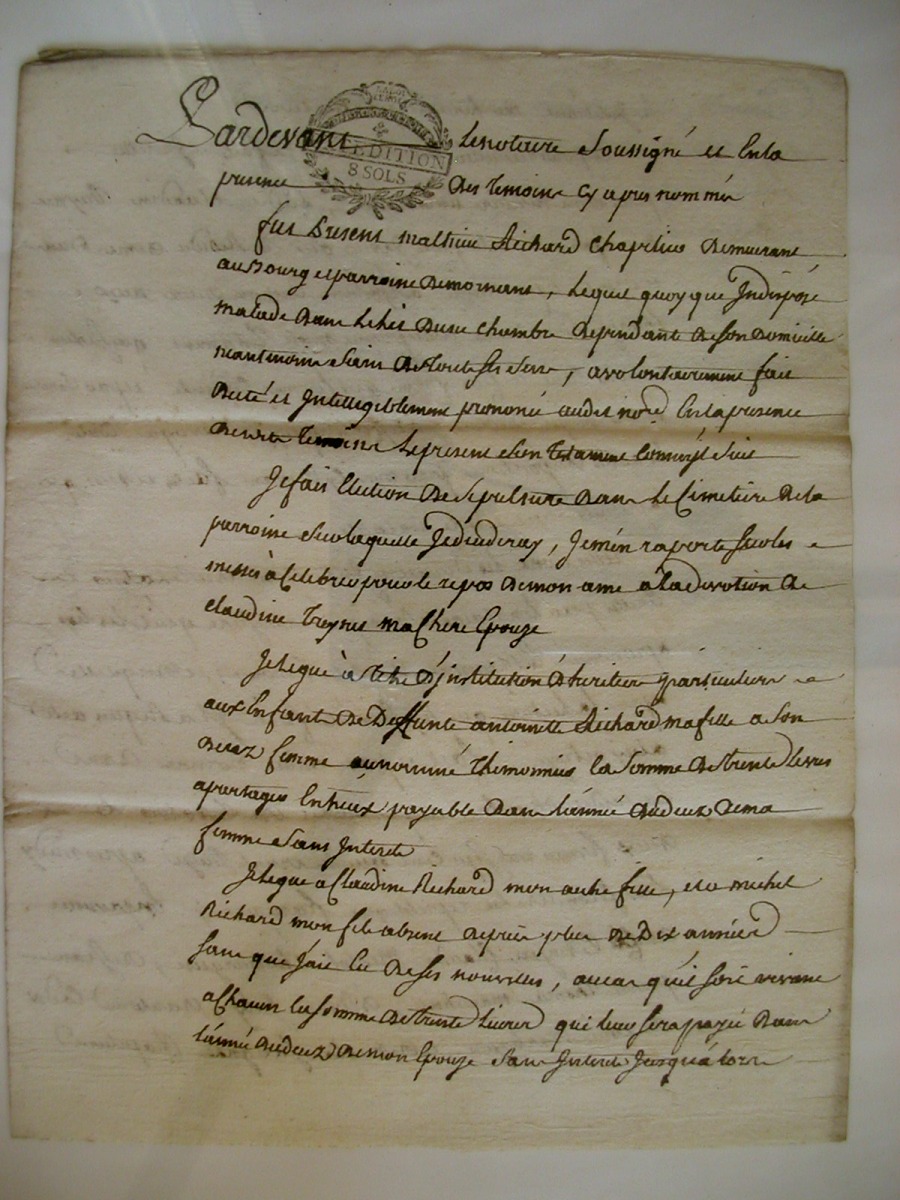 Pardevant le notaire soussigné et en la
EXPEDITION
8 SOLS
presence des temoins cy apres nommés
fut present mathieu Richard chapelier demeurant
au Bourg et parroisse de mornant, lequel quoy que Indisposé
malade dans le lit d'une chambre dependant de son domicille
neantmoins sain de tout ses sens, a volontairement fait
dicté et Intellegiblement prononcé audit no.re En la presence
desdits temoins le present son testament comm'jl suit
Je fais Election de sepulture dans le Cimetiere de la
parroisse sur laquelle Je decederay, Je m'en raporte sur les
messes à celebrer pour le repos de mon ame à la devotion de
claudine Treynet ma chere Epouze
Je legue à titre d'jnstitution d'heritier particuliere
aux Enfants de Deffunte antoinette Richard ma fille a son
deces femme au nommé Thimonnier la somme de trente livres
a partager Entreux payable dans l'année du deces de ma
femme sans Interets
Je legue a Claudine Richard mon autre fille, et a michel
Richard mon fils absent depuis plus de Dix années
sans que j'aie Eu de ses nouvelles, au cas qu'il soit vivant
a chacun la somme de trente livres qui leur sera payé dans
l'année du deces de mon Epouze sans Interets Jusqu'à lors